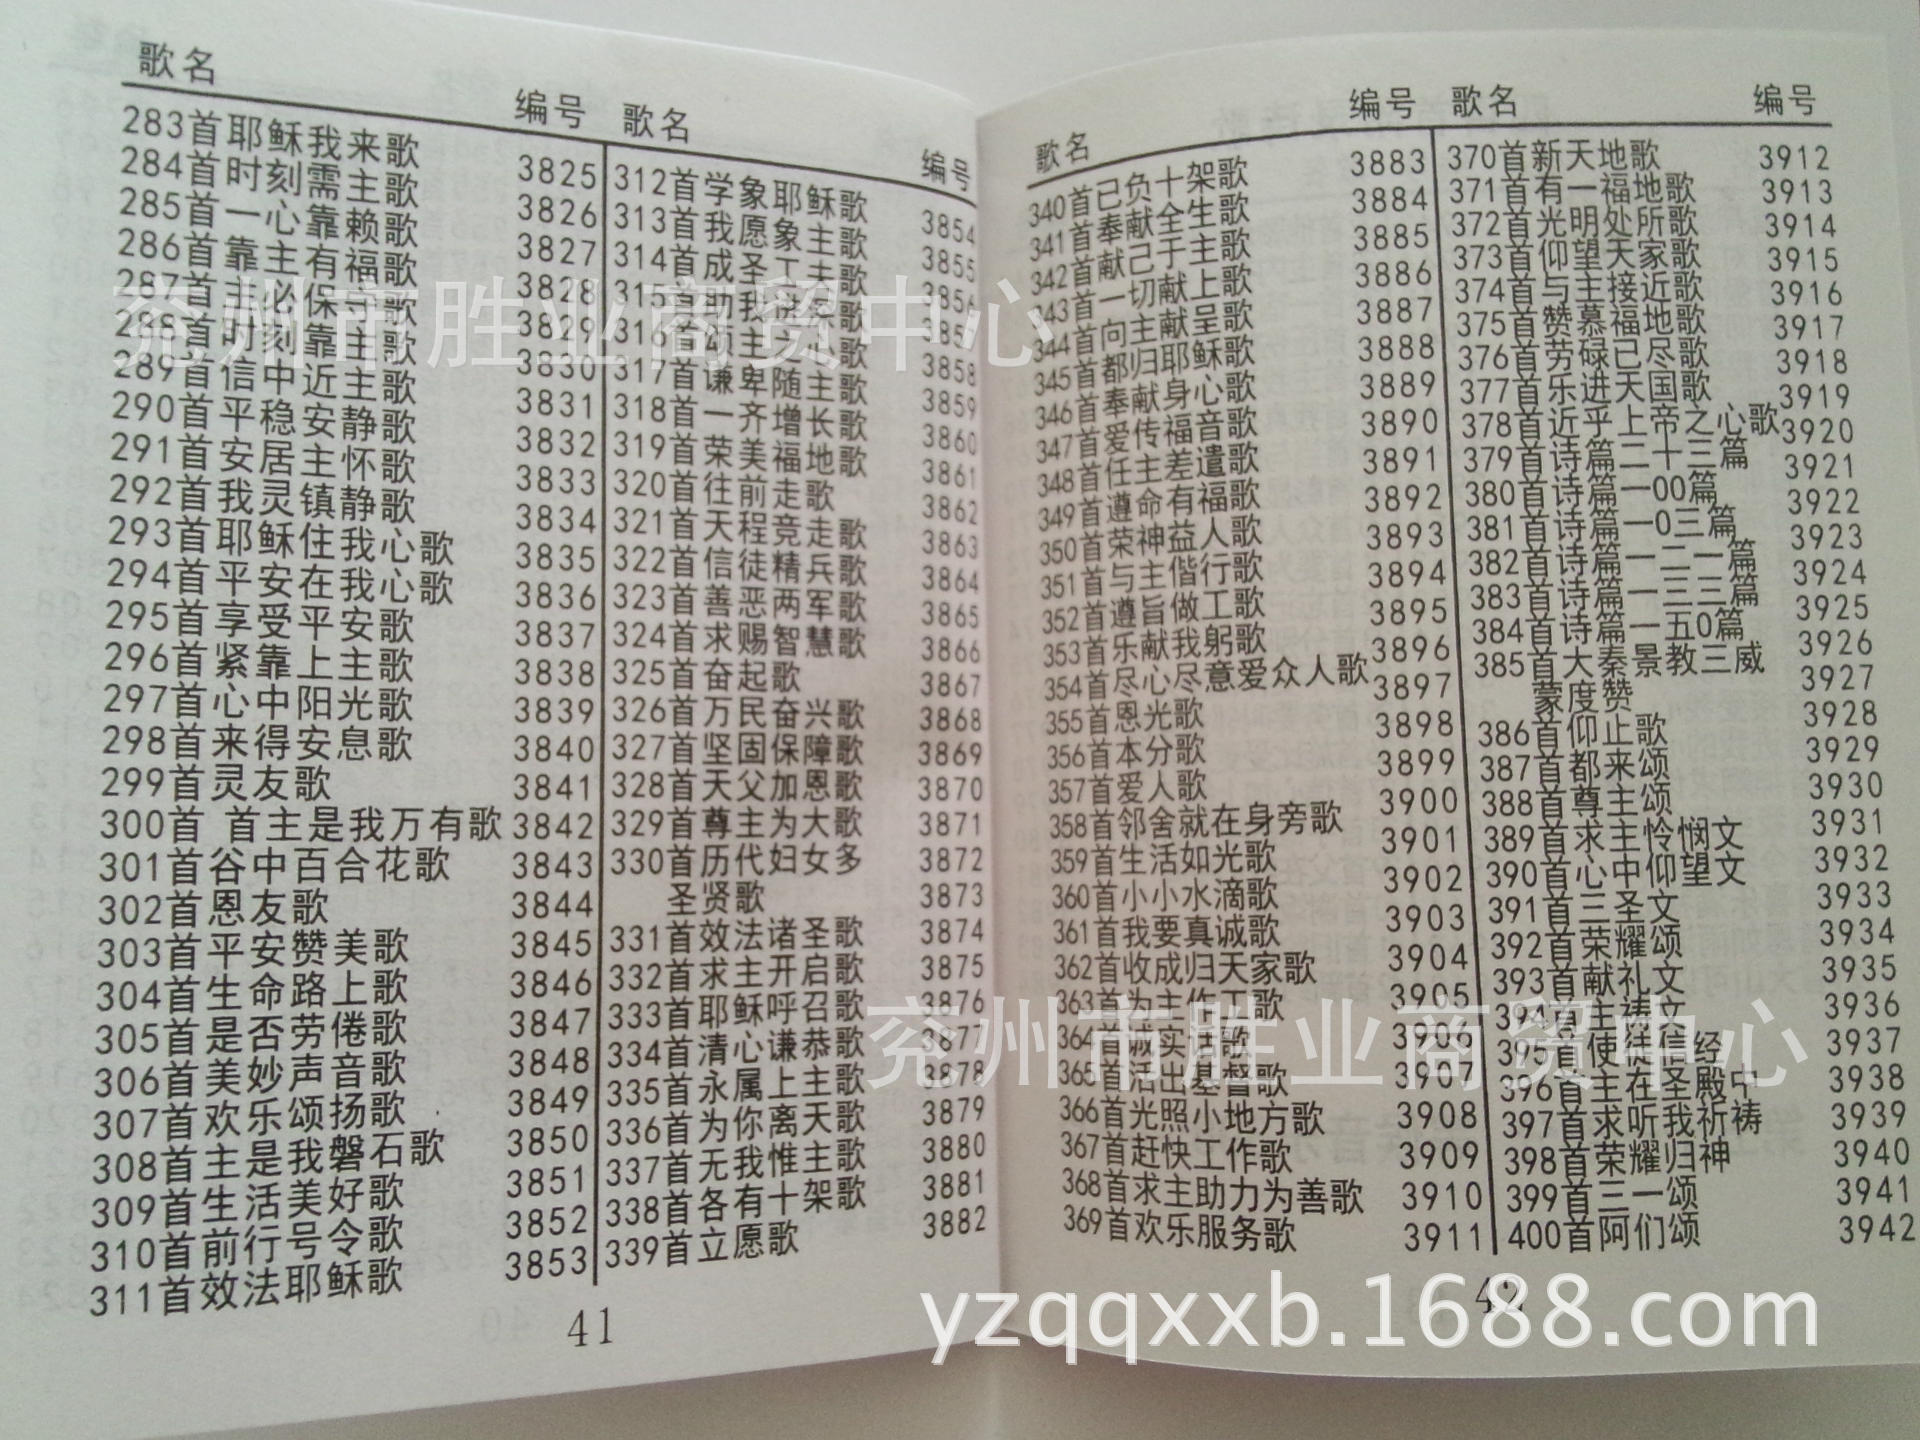 歌名
283首耶稣我来歌
284首时刻需主歌
285首一心靠赖歌
286首靠主有福歌
287首主必保守歌
288首时刻靠主歌
289首信中近主歌
290首平稳安静歌
291首安居主怀歌
292首我灵镇静歌
293首耶稣住我心歌
294首平安在我心歌
295首享受平安歌
296首紧靠上主歌
297首心中阳光歌
298首来得安息歌
299首灵友歌
300首 首主是我万有歌
301首谷中百合花歌
302首恩友歌
303首平安赞美歌
304首生命路上歌
305首是否劳倦歌
306首美妙声音歌
307首欢乐颂扬歌
308首主是我磐石歌
309首生活美好歌
310首前行号令歌
311首效法耶稣歌
编号
3825
3826
3827
3828
3829
3830
3831
3832
3833
3834
3835
3836
3837
3838
3839
3840
3841
3842
3843
3844
3845
3846
3847
3848
3849
3850
3851
3852
3853
歌名
312首学象耶稣歌
313首我愿象主歌
314首成圣工夫歌
315首助我进深歌
316首颂主之心歌
317首谦卑随主歌
318首一齐增长歌
319首荣美福地歌
320首往前走歌
321首天程竞走歌
322首信徒精兵歌
323首善恶两军歌
324首求赐智慧歌
325首奋起歌
326首万民奋兴歌
327首坚固保障歌
328首天父加恩歌
329首尊主为大歌
330首历代妇女多
圣贤歌
331首效法诸圣歌
332首求主开启歌
333首耶稣呼召歌
334首清心谦恭歌
335首永属上主歌
336首为你离天歌
337首无我惟主歌
338首各有十架歌
339首立愿歌
编号
3854
3855
3856
3857
3858
3859
3860
3861
3862
3863
3864
3865
3866
3867
3868
3869
3870
3871
3872
3873
3874
3875
3876
3877
3878
3879
3880
3881
3882
41
歌名
340首已负十架歌
341首奉献全生歌
342首献己于主歌
343首一切献上歌
344首向主献呈歌
345首都归耶稣歌
346首奉献身心歌
347首爱传福音歌
348首任主差遣歌
349首遵命有福歌
350首荣神益人歌
351首与主偕行歌
352首遵旨做工歌
353首乐献我躬歌
354首尽心尽意爱众人歌
355首恩光歌
356首本分歌
357首爱人歌
358首邻舍就在身旁歌
359首生活如光歌
360首小小水滴歌
361首我要真诚歌
362首收成归天家歌
363首为主作工歌
364首诚实话歌
365首活出基督歌
366首光照小地方歌
367首赶快工作歌
368首求主助力为善歌
369首欢乐服务歌
编号
3883
3884
3885
3886
3887
3888
3889
3890
3891
3892
3893
3894
3895
3896
3897
3898
3899
3900
3901
3902
3903
3904
3905
3906
3907
3908
3909
3910
3911
歌名
370首新天地歌
371首有一福地歌
372首光明处所歌
373首仰望天家歌
374首与主接近歌
375首赞慕福地歌
376首劳碌已尽歌
377首乐进天国歌
378首近乎上帝之心歌
379首诗篇二十三篇
380首诗篇一00篇
381首诗篇一0三篇
382首诗篇一二一篇
383首诗篇一三三篇
384首诗篇一五0篇
385首大秦景教三威
蒙度赞
386首仰止歌
387首都来颂
388首尊主颂
389首求主怜悯文
390首心中仰望文
391首三圣文
392首荣耀颂
393首献礼文
394首主祷文
395首使徒信经
396首主在圣殿中
397首求听我祈祷
398首荣耀归神
399首三一颂
400首阿们颂
编号
3912
3913
3914
3915
3916
3917
3918
3919
3920
3921
3922
3923
3924
3925
3926
3927
3928
3929
3930
3931
3932
3933
3934
3935
3936
3937
3938
3939
3940
3941
3942
42
兖州市胜业商贸中心
兖州市胜业商贸中心
yzqqxxb.1688.com